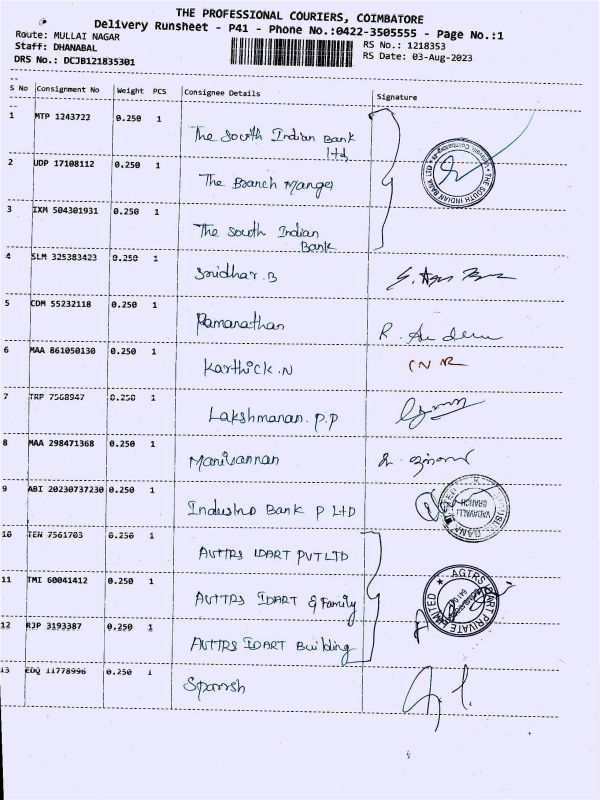 THE PROFESSIONAL COURIERS, COIMBATORE
Delivery Runsheet - P41 - Phone No.:0422-3505555 - Page No.:1
Route: MULLAI NAGAR
RS No.: 1218353
Staff: DHANABAL
RS Date: 03-Aug-2023
DRS No.: DCJB121835301
S No Consignment No Weight PCS Consignee Details Signature
1 MTP 1243722 0.250 1 The South Indian Bank
ltd
THE SOUTH INDIAN BANK LTD
2 UDP 17108112 0.250 1 The Branch Manger
3 IXM 504301931 0.250 1 The South Indian
Bank
4 SLM 325383423 0.250 1 Sridhar.B
5 CDM 55232118 0.250 1 Ramanathan R.
6 MAA 861050130 0.250 1 Karthick.N
7 TRP 7568947 0.250 1 Lakshmanan.P.P
8 MAA 298471368 0.250 1 Manivannan
9 ABI 20230737230 0.250 1 IndusInd Bank P LTD
VADAVALLI
BRANCH
10 TEN 7561703 0.250 1 AVTTRS IDART PVT LTD
11 TMI 60041412 0.250 1 AVTTRS IDART & Family
PRIVATE LIMITED
12 RJP 3193387 0.250 1 AVTTRS IDART Building
13 EDQ 11778996 0.250 1